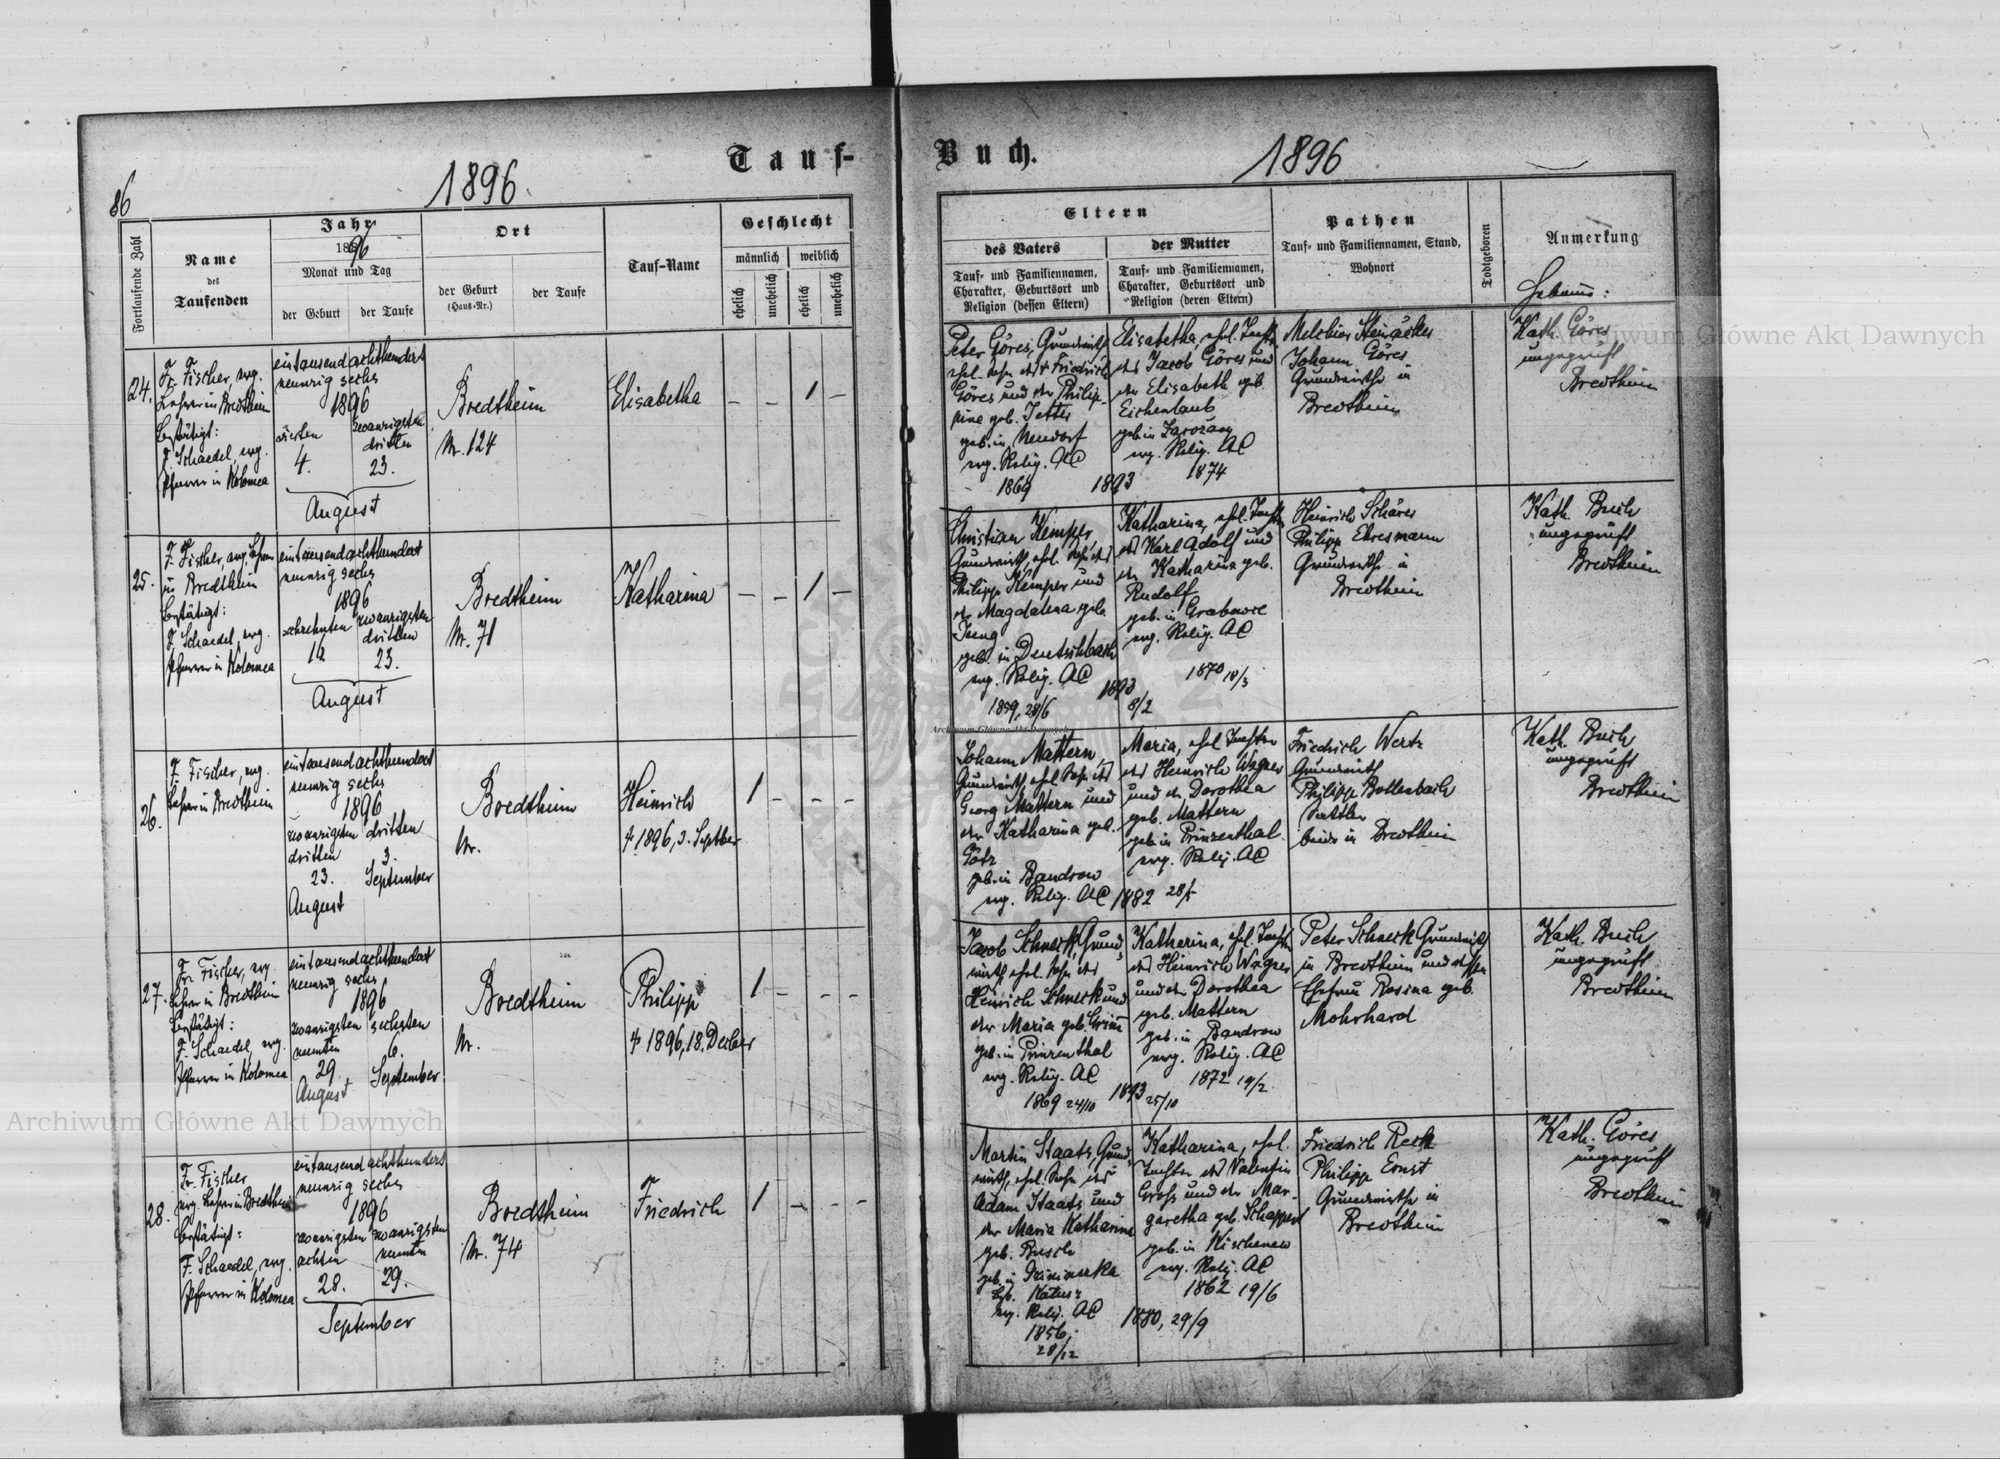 86
1896
Tauf-
Buch.
1896
Fortlaufende Zahl
Name
des
Taufenden
Jahr
1896
Monat und Tag
der Geburt
der Taufe
Ort
der Geburt
(Haus-Nr.)
der Taufe
Tauf-Name
Geschlecht
männlich
weiblich
ehelich
unehelich
ehelich
unehelich
Eltern
des Vaters
Tauf- und Familiennamen,
Charakter, Geburtsort und
Religion (dessen Eltern)
der Mutter
Tauf- und Familiennamen,
Charakter, Geburtsort und
Religion (deren Eltern)
Pathen
Tauf- und Familiennamen, Stand,
Wohnort
Todtgeboren
Anmerkung
24.
Fr. Fischer, evg.
Lehrer in Bredtheim
Bestätigt:
F. Schaedel, evg.
Pfarrer in Kolomea
eintausendachthundert
neunzig sechs
1896
vierten
4.
zwanzigsten
dritten
23.
August
Bredtheim
Nr. 124
Elisabetha
– – 1 –
Peter Göres, Grundwirth
ehel. Sohn des † Friedrich
Göres und der Philip-
pine geb.
geb. in Neudorf
evg. Relig. AC
1869
1893
Elisabetha, ehel. Tochter
des Jacob Göres und
der Elisabeth geb.
Eichenlaub
geb. in
evg. Relig. AC
1874
Melchior
Johann Göres
Grundwirthe in
Bredtheim
Kath. Göres
ungeprüft
Bredtheim
25.
F. Fischer, evg. Lehrer
in Bredtheim
Bestätigt:
F. Schaedel, evg.
Pfarrer in Kolomea
eintausendachthundert
neunzig sechs
1896
zwanzigsten
dritten
23.
August
Bredtheim
Nr. 71
Katharina
– – 1 –
Christian Kemper
Grundwirth, ehel. Sohn des
Philipp Kemper und
der Magdalena geb.
geb. in Deutschbach
evg. Relig. AC
1859, 28/6
1893
8/2
Katharina, ehel. Tochter
des Karl Adolf und
der Katharina geb.
Rudolf
geb. in
evg. Relig. AC
1870 18/3
Heinrich Schäres
Philipp Ehresmann
Grundwirthe in
Bredtheim
Kath. Buch
ungeprüft
Bredtheim
26.
F. Fischer, evg.
Lehrer in Bredtheim
eintausendachthundert
neunzig sechs
1896
zwanzigsten
dritten
23.
August
dritten
3.
September
Bredtheim
Nr.
Heinrich
† 1896, 3. Septber
1 – – –
Johann Mattern,
Grundwirth ehel. Sohn des
Georg Mattern und
der Katharina geb.
Götz
geb. in Bandrow
evg. Relig. AC
1882
Maria, ehel. Tochter
des Heinrich Wagner
und der Dorothea
geb. Mattern
geb. in Prinzenthal
evg. Relig. AC
Friedrich Wertz
Grundwirth
Philipp Bollenbach
Sattler
beide in Bredtheim
Kath. Buch
ungeprüft
Bredtheim
27.
Fr. Fischer, evg.
Lehrer in Bredtheim
Bestätigt:
F. Schaedel, evg.
Pfarrer in Kolomea
eintausendachthundert
neunzig sechs
1896
zwanzigsten
neunten
29.
August
sechsten
6.
September
Bredtheim
Nr.
Philipp
† 1896, 18. Decber
1 – – –
Jacob Schneck, Grund-
wirth ehel. Sohn des
Heinrich Schneck und
der Maria geb. Grim
geb. in Prinzenthal
evg. Relig. AC
1869 24/10
1893
25/10
Katharina, ehel. Tochter
des Heinrich Wagner
und der Dorothea
geb. Mattern
geb. in Bandrow
evg. Relig. AC
1872 19/2
Peter Schneck Grundwirth
in Bredtheim und dessen
Ehefrau Rosina geb.
Mohrhard
Kath. Buch
ungeprüft
Bredtheim
28.
Fr. Fischer
evg. Lehrer in Bredtheim
Bestätigt:
F. Schaedel, evg.
Pfarrer in Kolomea
eintausendachthundert
neunzig sechs
1896
zwanzigsten
achten
28.
zwanzigsten
neunten
29.
September
Bredtheim
Nr. 74
Friedrich
1 – – –
Martin Staats, Grund-
wirth, ehel. Sohn des
Adam Staats und
der Maria Katharina
geb. Busch
geb. in
evg. Relig. AC
1856,
28/12
1880, 29/9
Katharina, ehel.
Tochter des Valentin
Gross und der Mar-
garetha geb. Schappert
geb. in
evg. Relig. AC
1862 19/6
Friedrich Reck
Philipp Ernst
Grundwirthe in
Bredtheim
Kath. Göres
ungeprüft
Bredtheim
Archiwum Główne Akt Dawnych
Archiwum Główne Akt Dawnych
Archiwum Główne Akt Dawnych